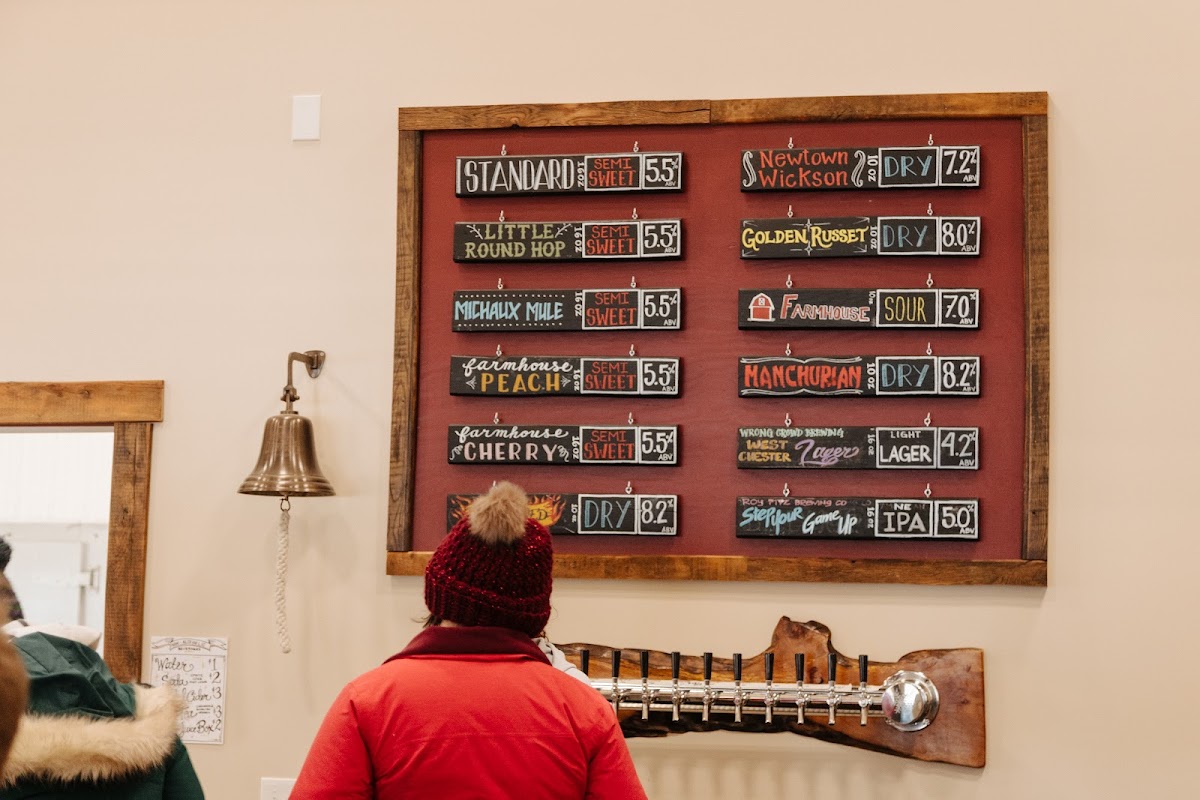 STANDARD 16 OZ SEMI SWEET 5.5% ABV
LITTLE ROUND HOP 16 OZ SEMI SWEET 5.5% ABV
MICHAUX MULE 16 OZ SEMI SWEET 5.5% ABV
farmhouse PEACH 16 OZ SEMI SWEET 5.5% ABV
farmhouse CHERRY 16 OZ SEMI SWEET 5.5% ABV
DRY 8.2% ABV
Newtown Wickson 10 OZ DRY 7.2% ABV
GOLDEN RUSSET 10 OZ DRY 8.0% ABV
FARMHOUSE SOUR 7.0% ABV
MANCHURIAN 10 OZ DRY 8.2% ABV
WRONG CROWD BREWING
WEST CHESTER Lager 16 OZ LIGHT LAGER 4.2% ABV
ROY PITZ BREWING CO
Step Your Game Up 16 OZ NE IPA 5.0% ABV
Water $1
Soda $2
$3
$3
Box $2